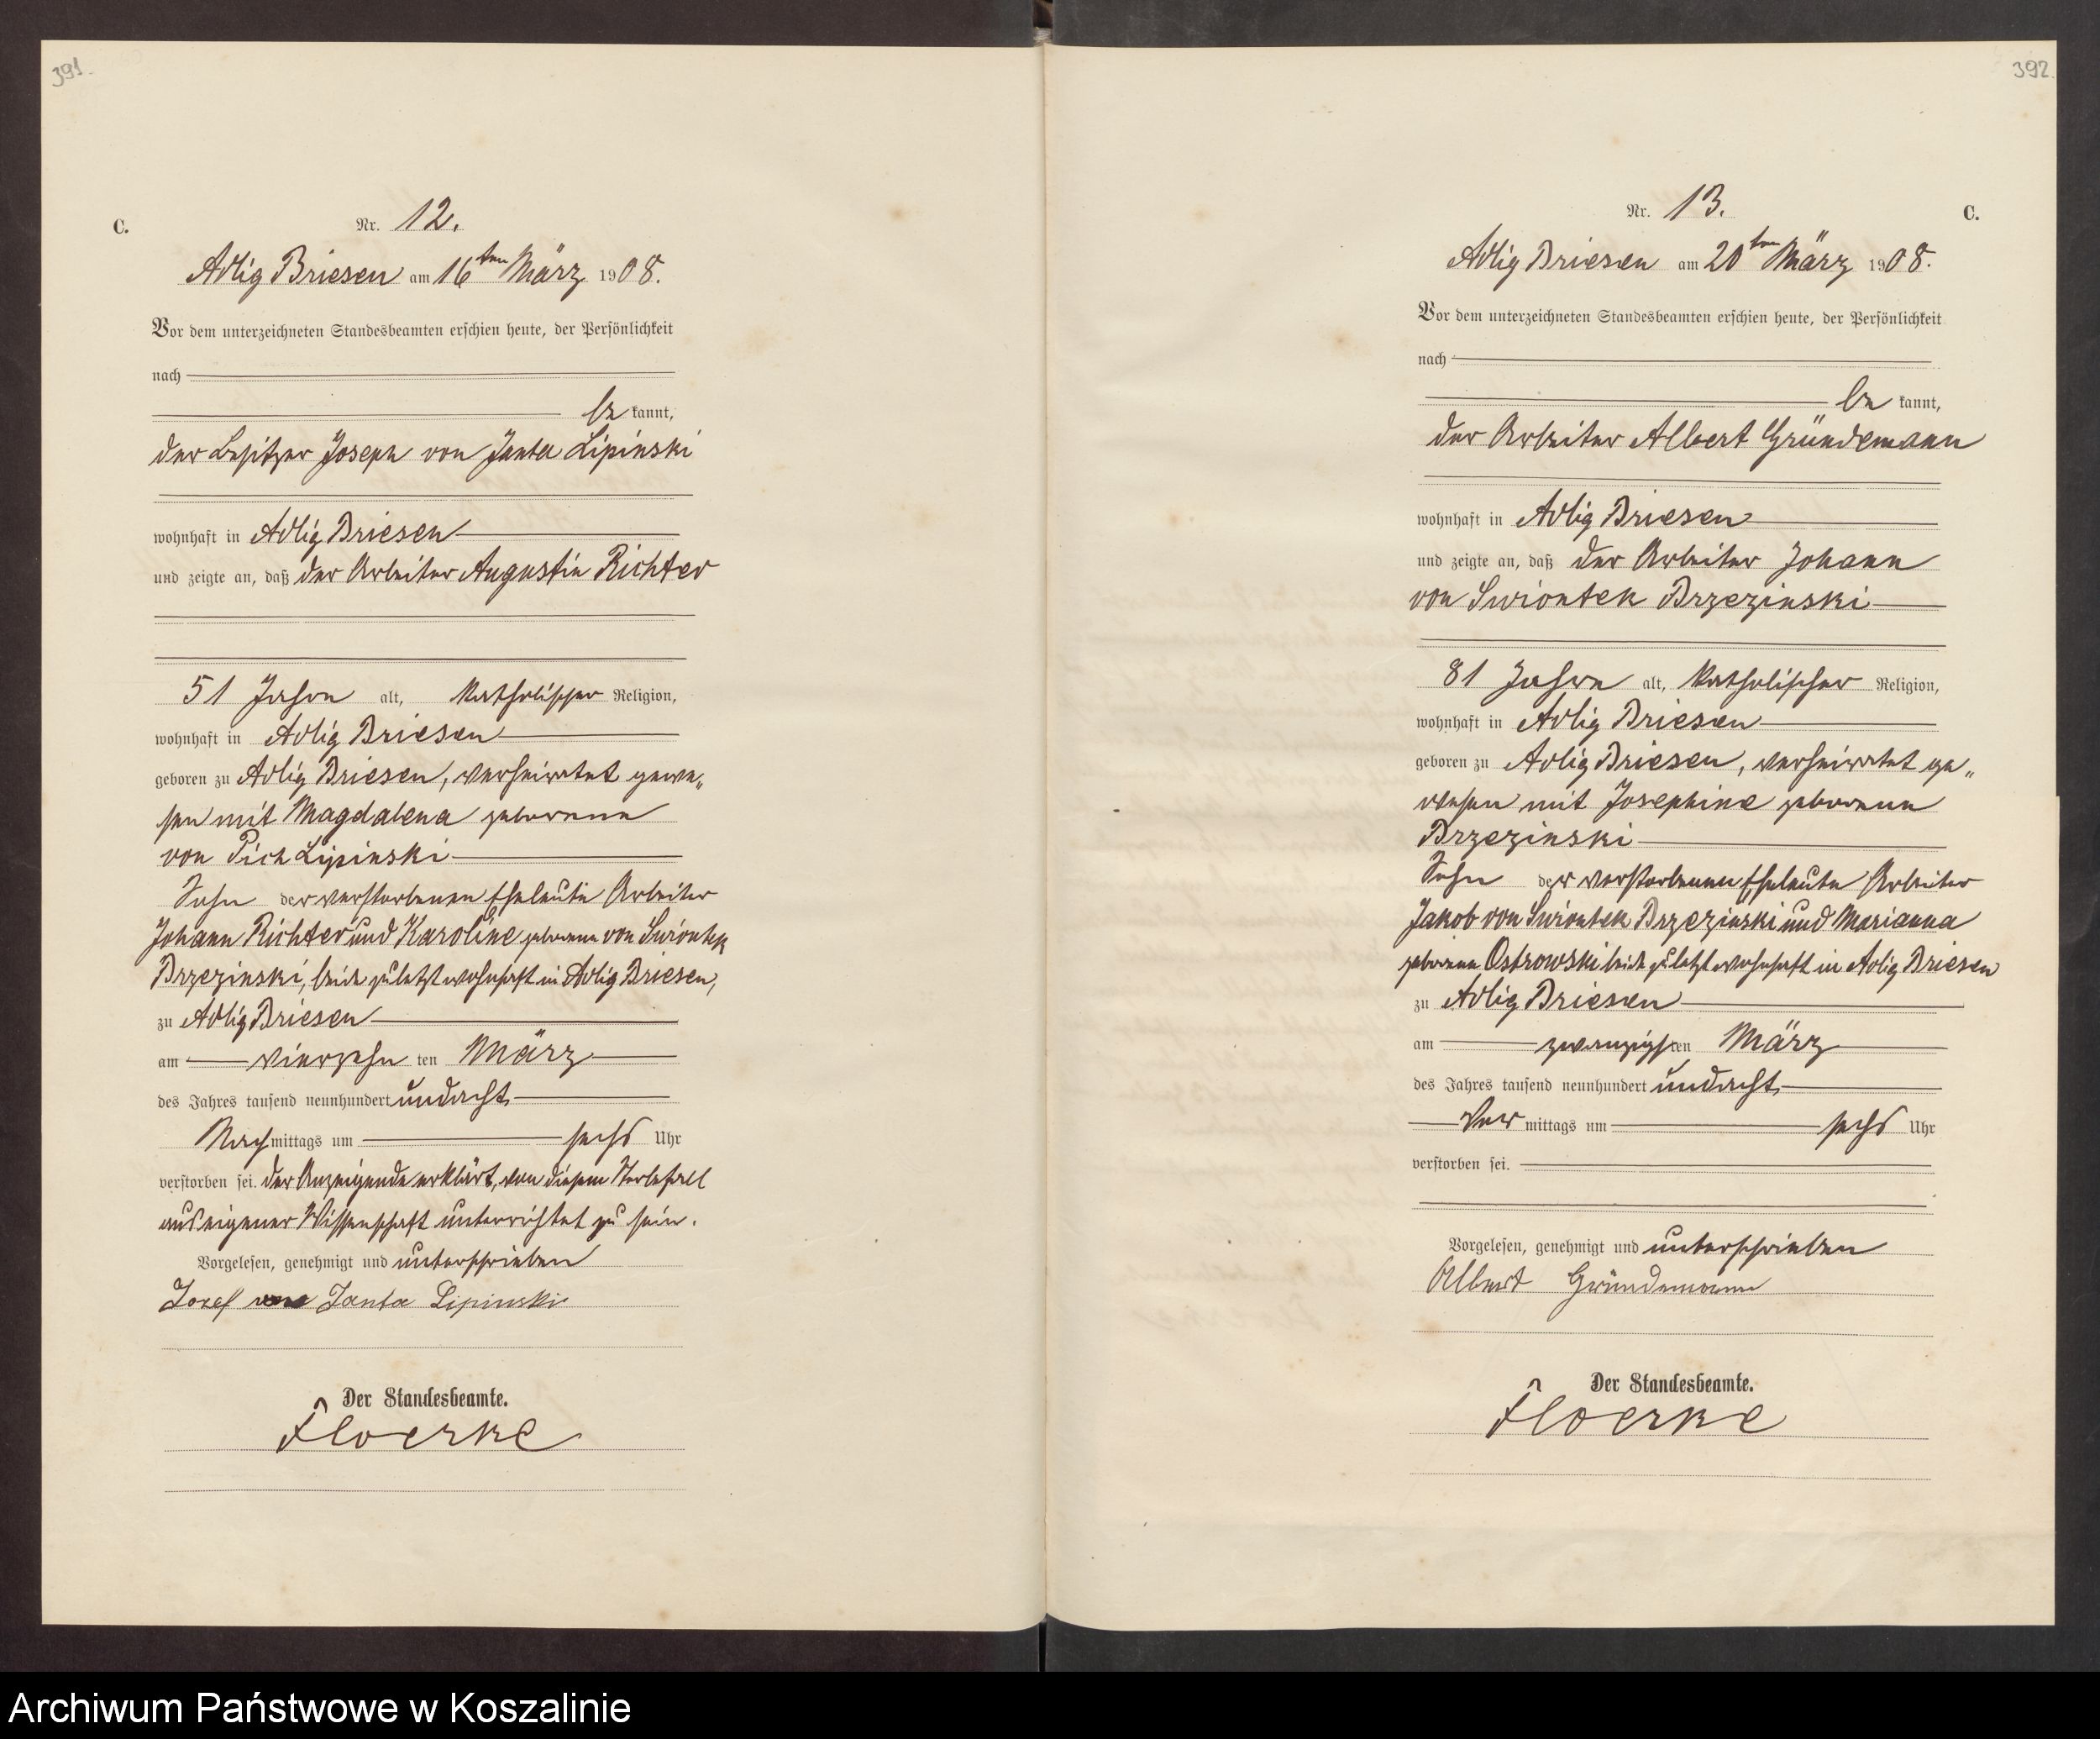 391.
C.
Nr. 12.
Adlig Briesen am 16ten März 1908.
Vor dem unterzeichneten Standesbeamten erschien heute, der Persönlichkeit
nach
be kannt,
der Besitzer Joseph von Janta Lipinski
wohnhaft in Adlig Briesen
und zeigte an, daß der Arbeiter Augustin Richter
51 Jahre alt, katholischer Religion,
wohnhaft in Adlig Briesen
geboren zu Adlig Briesen, verheiratet gewe„
sen mit Magdalena geborene
von Pich Lipinski
Sohn der verstorbenen Eheleute Arbeiter
Johann Richter und Karoline geborene von Swiontek
Brzezinski, beide zuletzt wohnhaft in Adlig Briesen,
zu Adlig Briesen
am vierzehn ten März
des Jahres tausend neunhundert undacht
Nachmittags um sechs Uhr
verstorben sei. Der Anzeigende erklärt, von diesem Sterbefall
aus eigener Wissenschaft unterrichtet zu sein.
Vorgelesen, genehmigt und unterschrieben
Jozef Janta Lipinski
Der Standesbeamte.
Floerke
392.
C.
Nr. 13.
Adlig Briesen am 20ten März 1908.
Vor dem unterzeichneten Standesbeamten erschien heute, der Persönlichkeit
nach
be kannt,
der Arbeiter Albert Gründemann
wohnhaft in Adlig Briesen
und zeigte an, daß der Arbeiter Johann
von Swiontek Brzezinski
81 Jahre alt, katholischer Religion,
wohnhaft in Adlig Briesen
geboren zu Adlig Briesen, verheiratet ge„
wesen mit Josephine geborene
Brzezinski
Sohn der verstorbenen Eheleute Arbeiter
Jakob von Swiontek Brzezinski und Marianna
geborene Ostrowski beide zuletzt wohnhaft in Adlig Briesen
zu Adlig Briesen
am zwanzigsten März
des Jahres tausend neunhundert undacht
Vor mittags um sechs Uhr
verstorben sei.
Vorgelesen, genehmigt und unterschrieben
Albert Gründemann
Der Standesbeamte.
Floerke
Archiwum Państwowe w Koszalinie